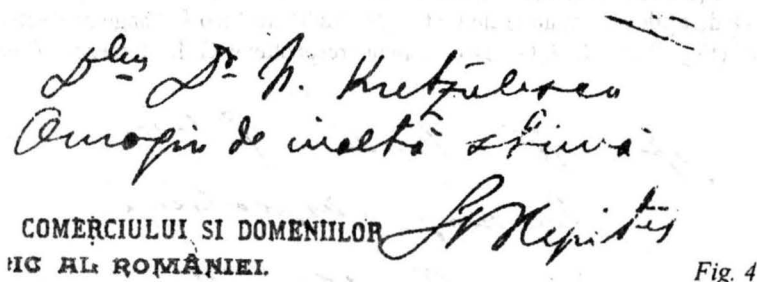 Dlui Dr N. Kretzulescu
Omagiu de inaltă stimă
St Hepites
COMERCIULUI SI DOMENIILOR
IC AL ROMÂNIEI.
Fig. 4